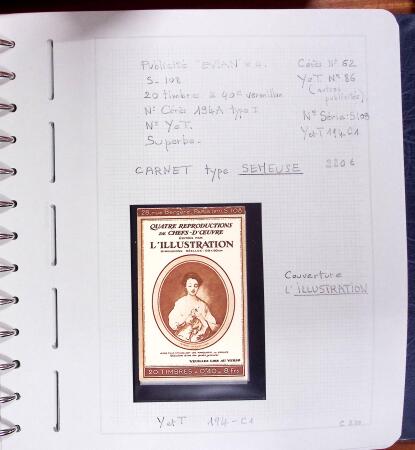 Publicité "EVIAN" x 4.
S-108
20 timbres à 40c vermillon
N° Cérès 194A type I
N° YeT.
Superbe.
Cérès N° 62
YeT N° 86
(autres publicités).
N° Série: S108
YetT 194-C1
CARNET type SEMEUSE
220 €
28, rue Bergère, Paris (9e) S 108
QUATRE REPRODUCTIONS
DE CHEFS-D'ŒUVRE
ÉDITÉES PAR
L'ILLUSTRATION
VEUILLEZ LIRE AU VERSO
20 TIMBRES à 0f40 = 8 Frs
Couverture
L'ILLUSTRATION
YetT 194-C1